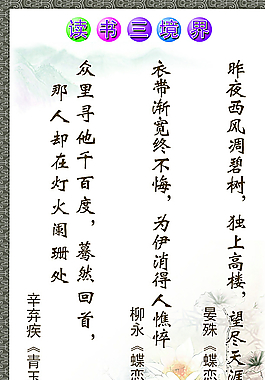 读书三境界
昨夜西风凋碧树，独上高楼，望尽天涯
晏殊《蝶恋
衣带渐宽终不悔，为伊消得人憔悴
柳永《蝶恋
众里寻他千百度，蓦然回首，
那人却在灯火阑珊处
辛弃疾《青玉